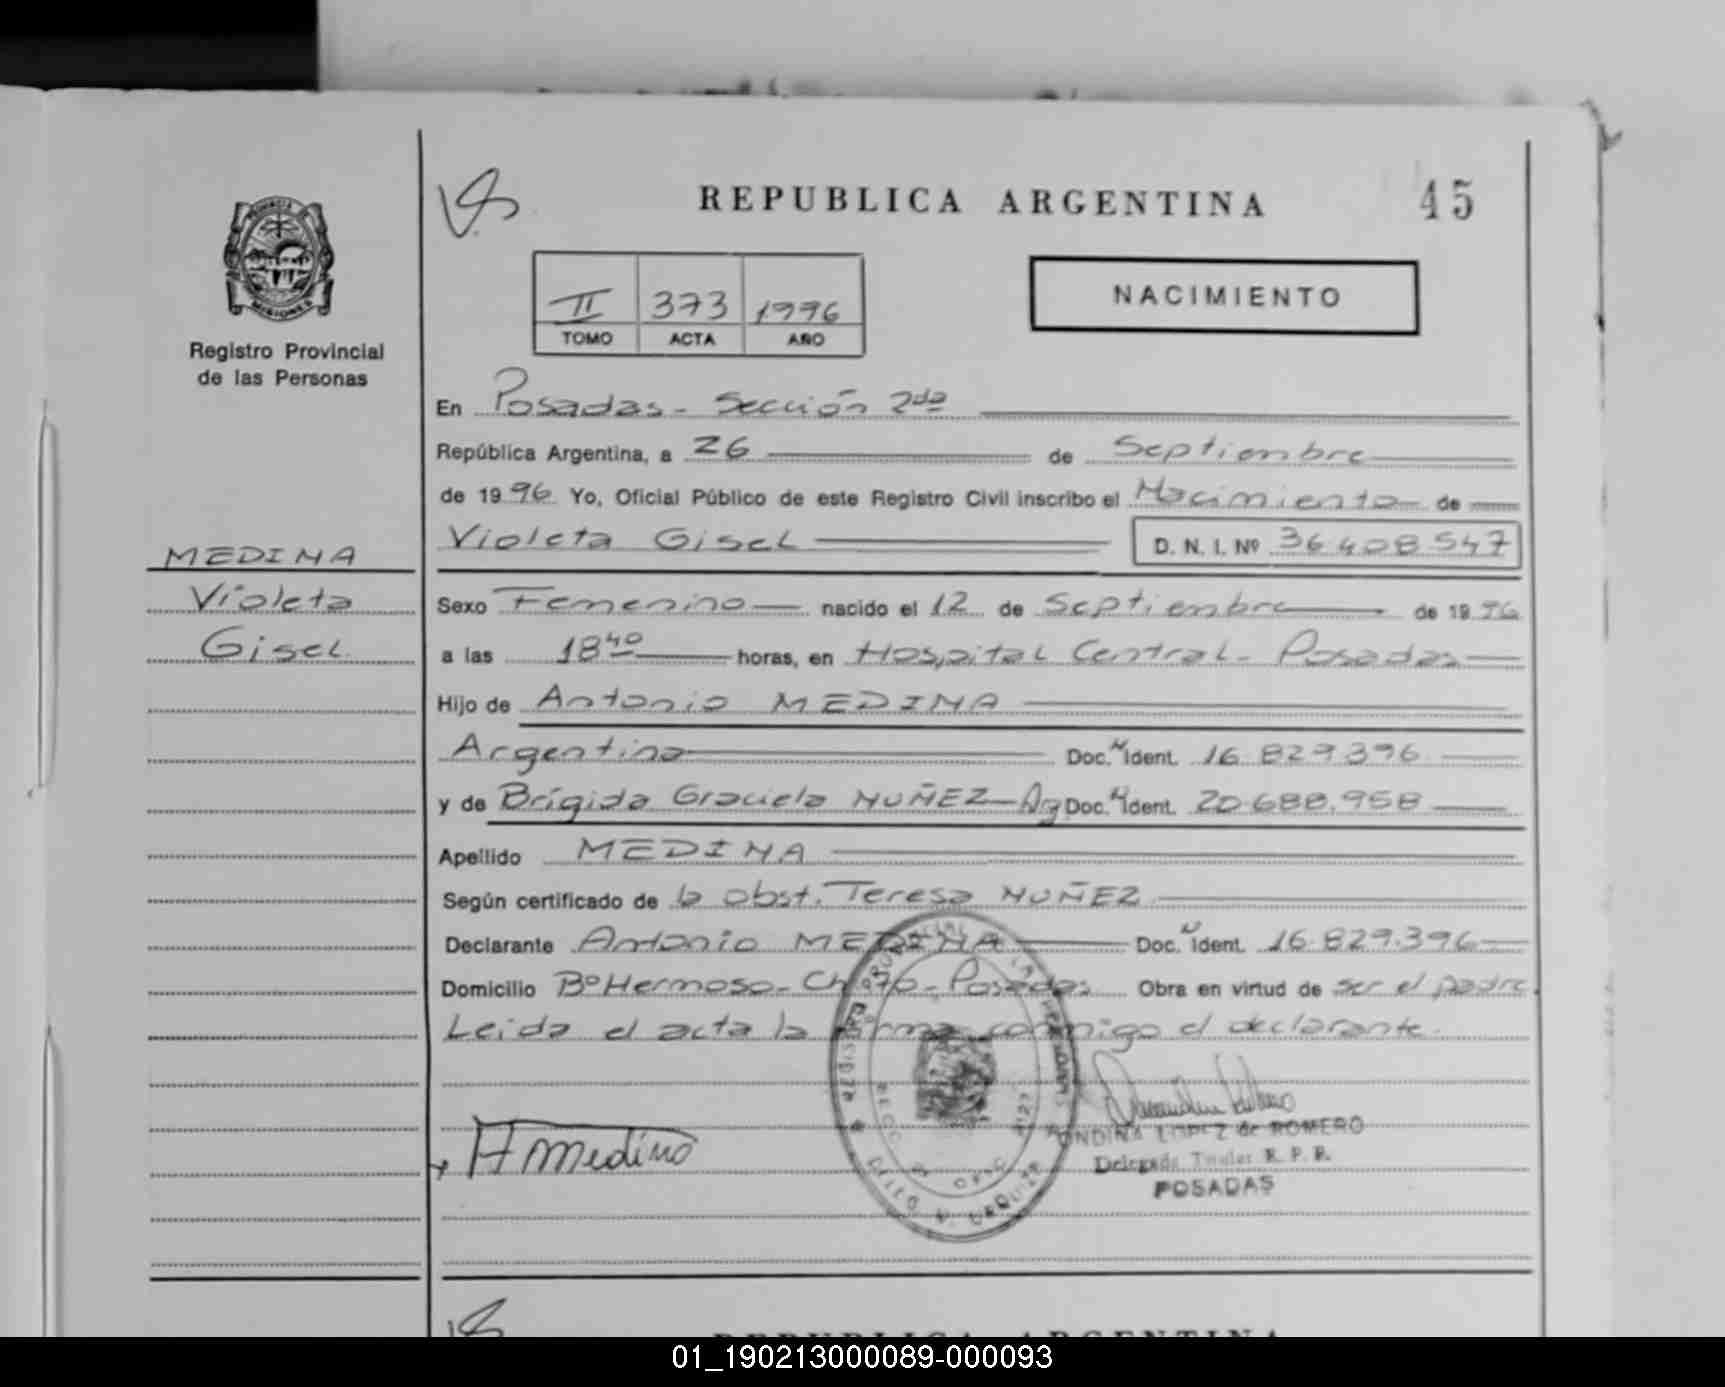 REPUBLICA ARGENTINA
45
PROVINCIA DE
MISIONES
Registro Provincial
de las Personas
II 373 1996
TOMO ACTA AÑO
NACIMIENTO
En Posadas - Sección 2da
República Argentina, a 26 de Septiembre
de 1996 Yo, Oficial Público de este Registro Civil inscribo el Nacimiento de
Violeta Gisel D. N. I. Nº 36.408.547
MEDINA
Violeta
Gisel
Sexo Femenino nacido el 12 de Septiembre de 1996
a las 18 40 horas, en Hospital Central - Posadas
Hijo de Antonio MEDINA
Argentina Doc. N Ident. 16.829.396
y de Brígida Graciela NUÑEZ - Arg Doc. N Ident. 20.688.958
Apellido MEDINA
Según certificado de la obst. Teresa NUÑEZ
Declarante Antonio MEDINA Doc. N Ident. 16.829.396
Domicilio Bº Hermoso - - Posadas Obra en virtud de ser el padre.
Leida el acta la firma conmigo el declarante.
A Medina
ONDINA LOPEZ de ROMERO
Delegada Titular R. P. P.
POSADAS
REPUBLICA ARGENTINA
01_190213000089-000093